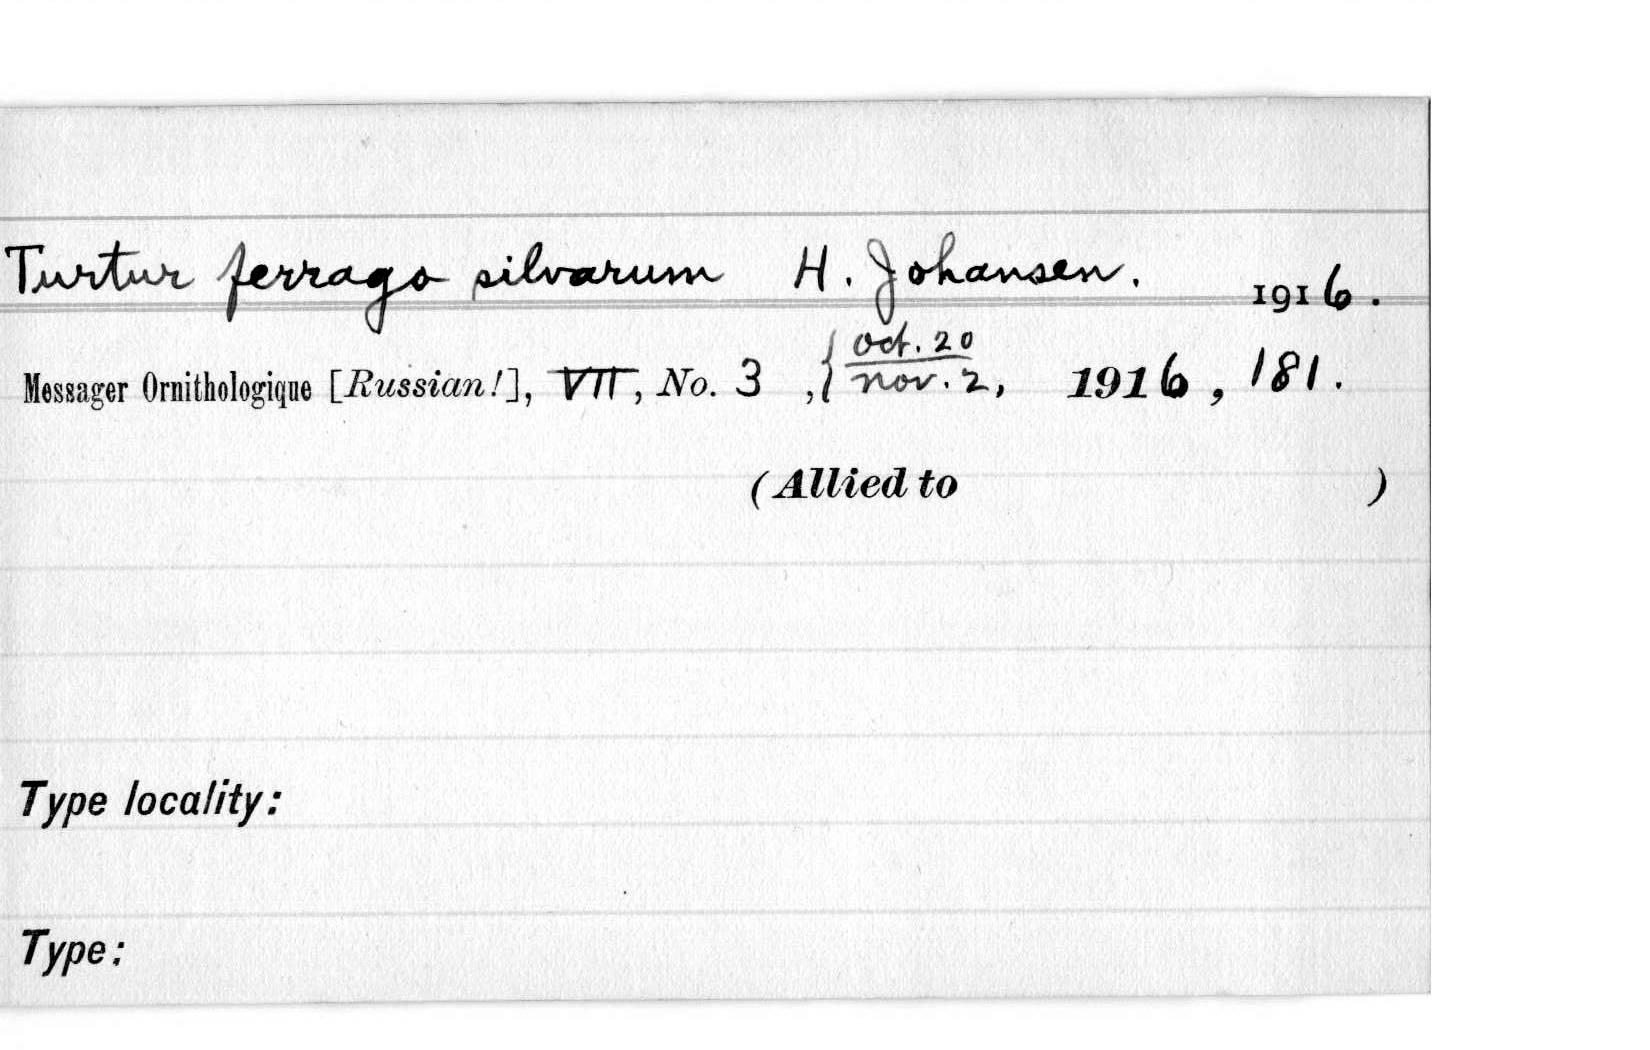 Turtur ferrago silvarum H. Johansen. 1916.
Messager Ornithologique [Russian!], VII, No. 3 ,{ Oct. 20
nov. 2, 1916, 181.
(Allied to )
Type locality:
Type: